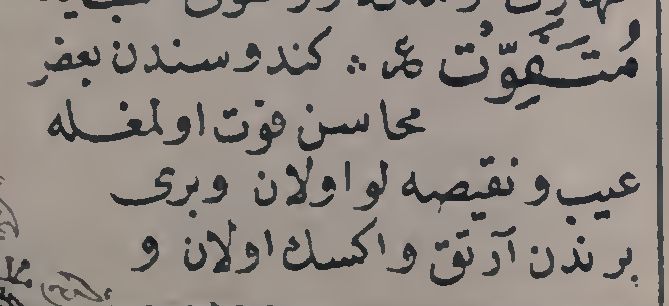 مُتَفَوِّت عم ∴ كندوسندن بعض
محاسن فوت اولمغله
عيب و نقيصه لو اولان و برى
برندن آرتق و اكسك اولان و